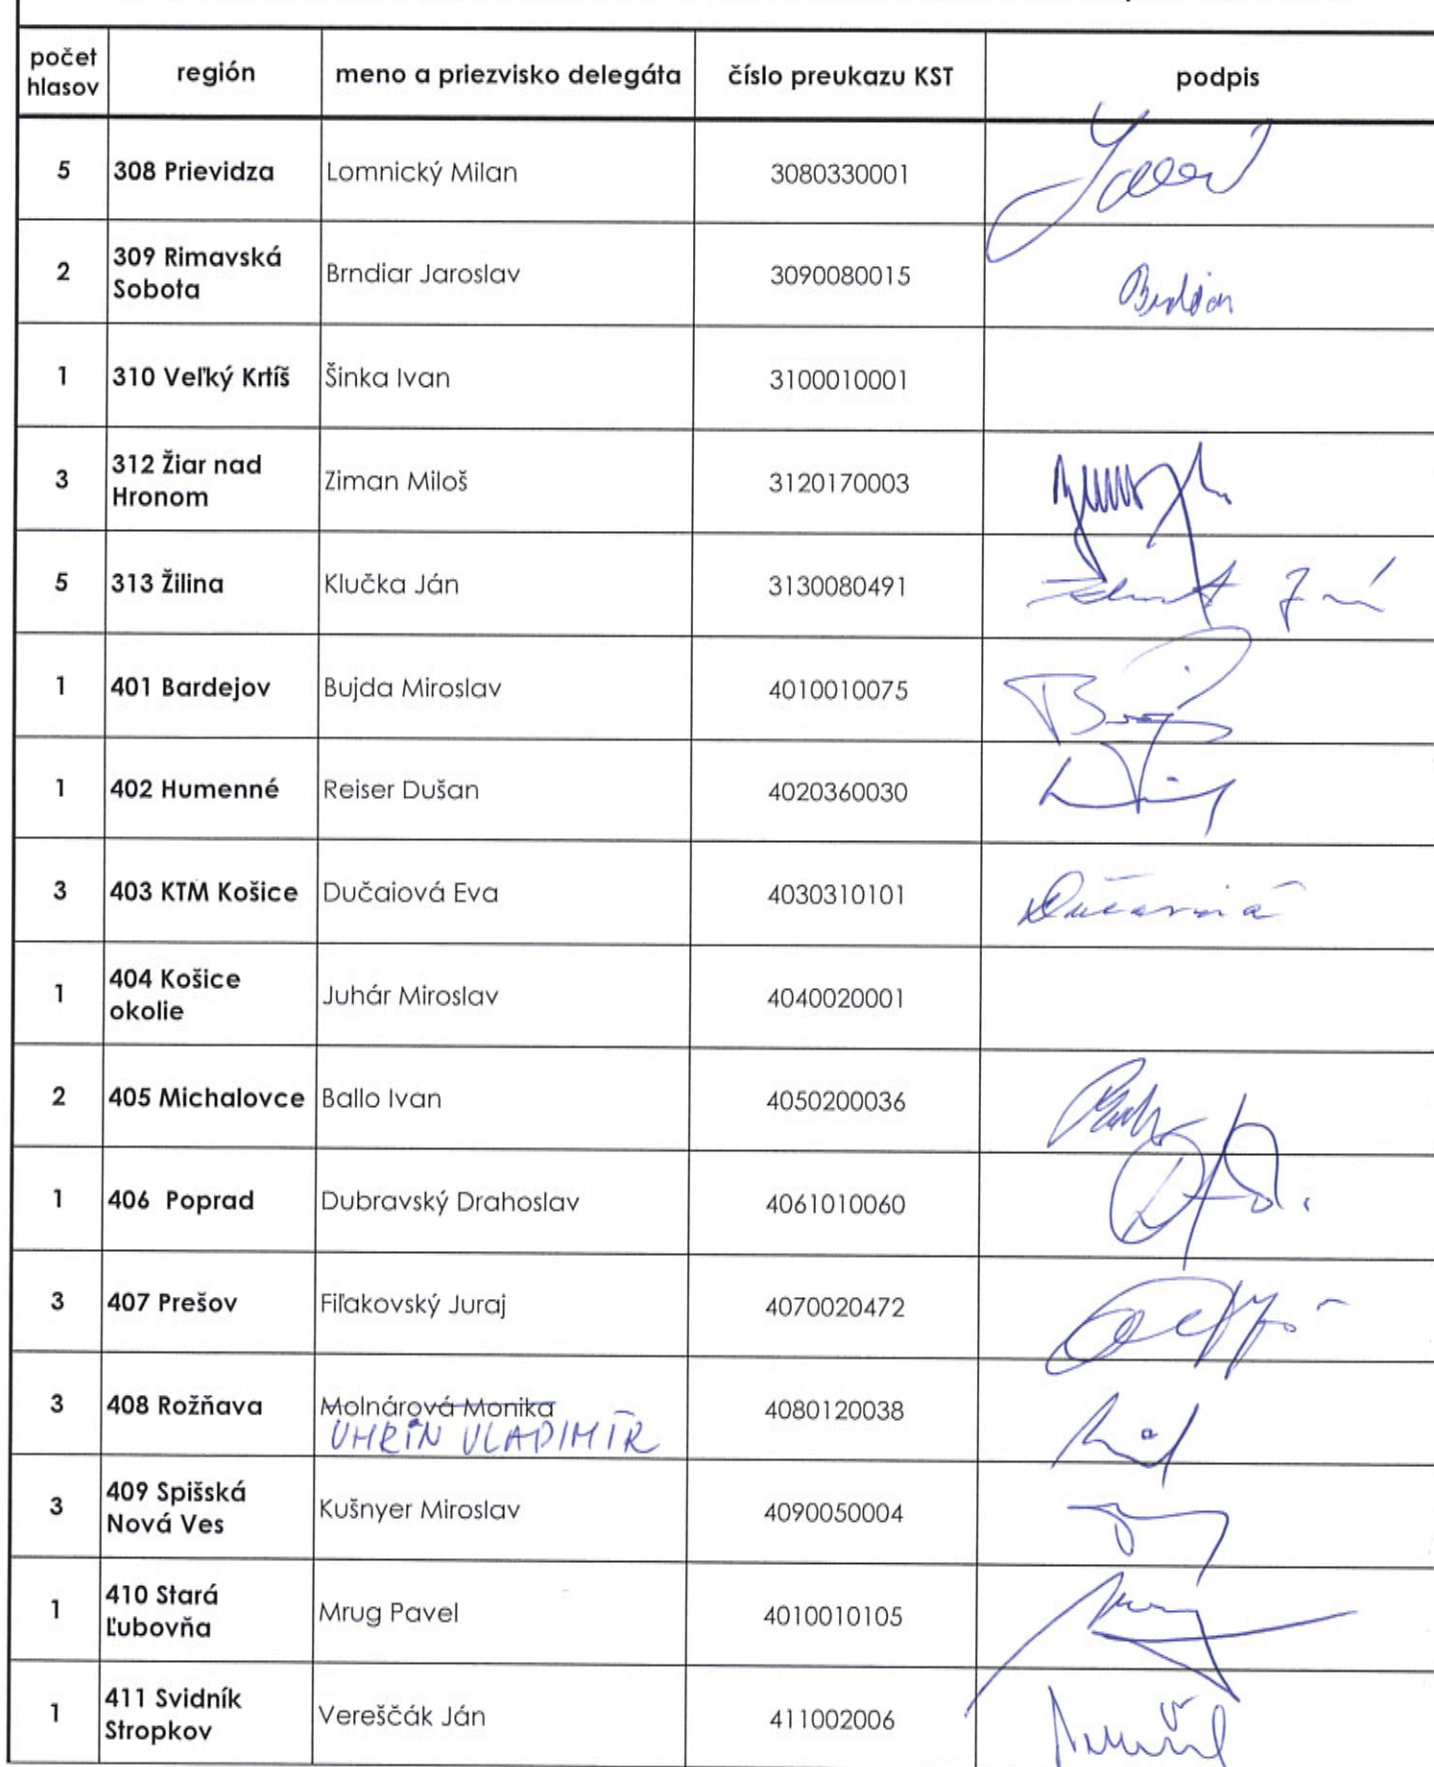 počet hlasov región meno a priezvisko delegáta číslo preukazu KST podpis
5 308 Prievidza Lomnický Milan 3080330001
2 309 Rimavská Sobota Brndiar Jaroslav 3090080015
1 310 Veľký Krtíš Šinka Ivan 3100010001
3 312 Žiar nad Hronom Ziman Miloš 3120170003
5 313 Žilina Klučka Ján 3130080491
1 401 Bardejov Bujda Miroslav 4010010075
1 402 Humenné Reiser Dušan 4020360030
3 403 KTM Košice Dučaiová Eva 4030310101
1 404 Košice okolie Juhár Miroslav 4040020001
2 405 Michalovce Ballo Ivan 4050200036
1 406 Poprad Dubravský Drahoslav 4061010060
3 407 Prešov Fiľakovský Juraj 4070020472
3 408 Rožňava Molnárová Monika 4080120038
UHRÍN VLADIMÍR
3 409 Spišská Nová Ves Kušnyer Miroslav 4090050004
1 410 Stará Ľubovňa Mrug Pavel 4010010105
1 411 Svidník Stropkov Vereščák Ján 411002006